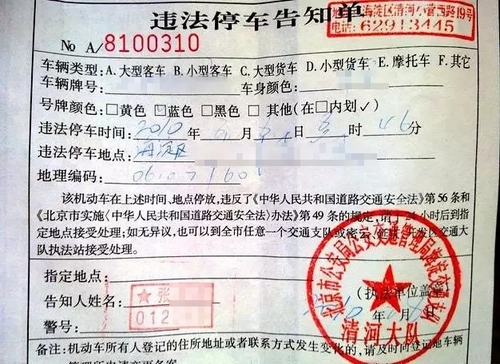 违法停车告知单
海淀区清河小营西路19号
电话:62913445
No A/8100310
车辆类型:A.大型客车 B.小型客车 C.大型货车 D.小型货车 E.摩托车 F.其它
车辆牌号: 车身颜色:
号牌颜色:□黄色 □蓝色 □黑色 □其他(在□内划√)
违法停车时间:2010年 月 日 时46分
违法停车地点:海淀区
地理编码:
该机动车在上述时间、地点停放,违反了《中华人民共和国道路交通安全法》第56条和
《北京市实施〈中华人民共和国道路交通安全法〉办法》第49条的规定,请于24小时后到指
定地点接受处理;如无异议,也可以到全市任意一个交通支队或 开发区交通大
队执法站接受处理。
指定地点:
告知人姓名:
★张
012
警号:
(执法单位盖章)
年 月 日
北京市公安局公安交通管理局海淀
清河大队
备注:机动车所有人登记的住所地址或者联系方式发生变化的,请及时向登记地车辆